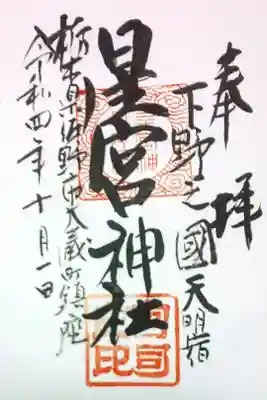 奉拝
下野之國天明宿
星宮神社
栃木県佐野市大蔵町鎮座
令和四年十月一日
宮司印